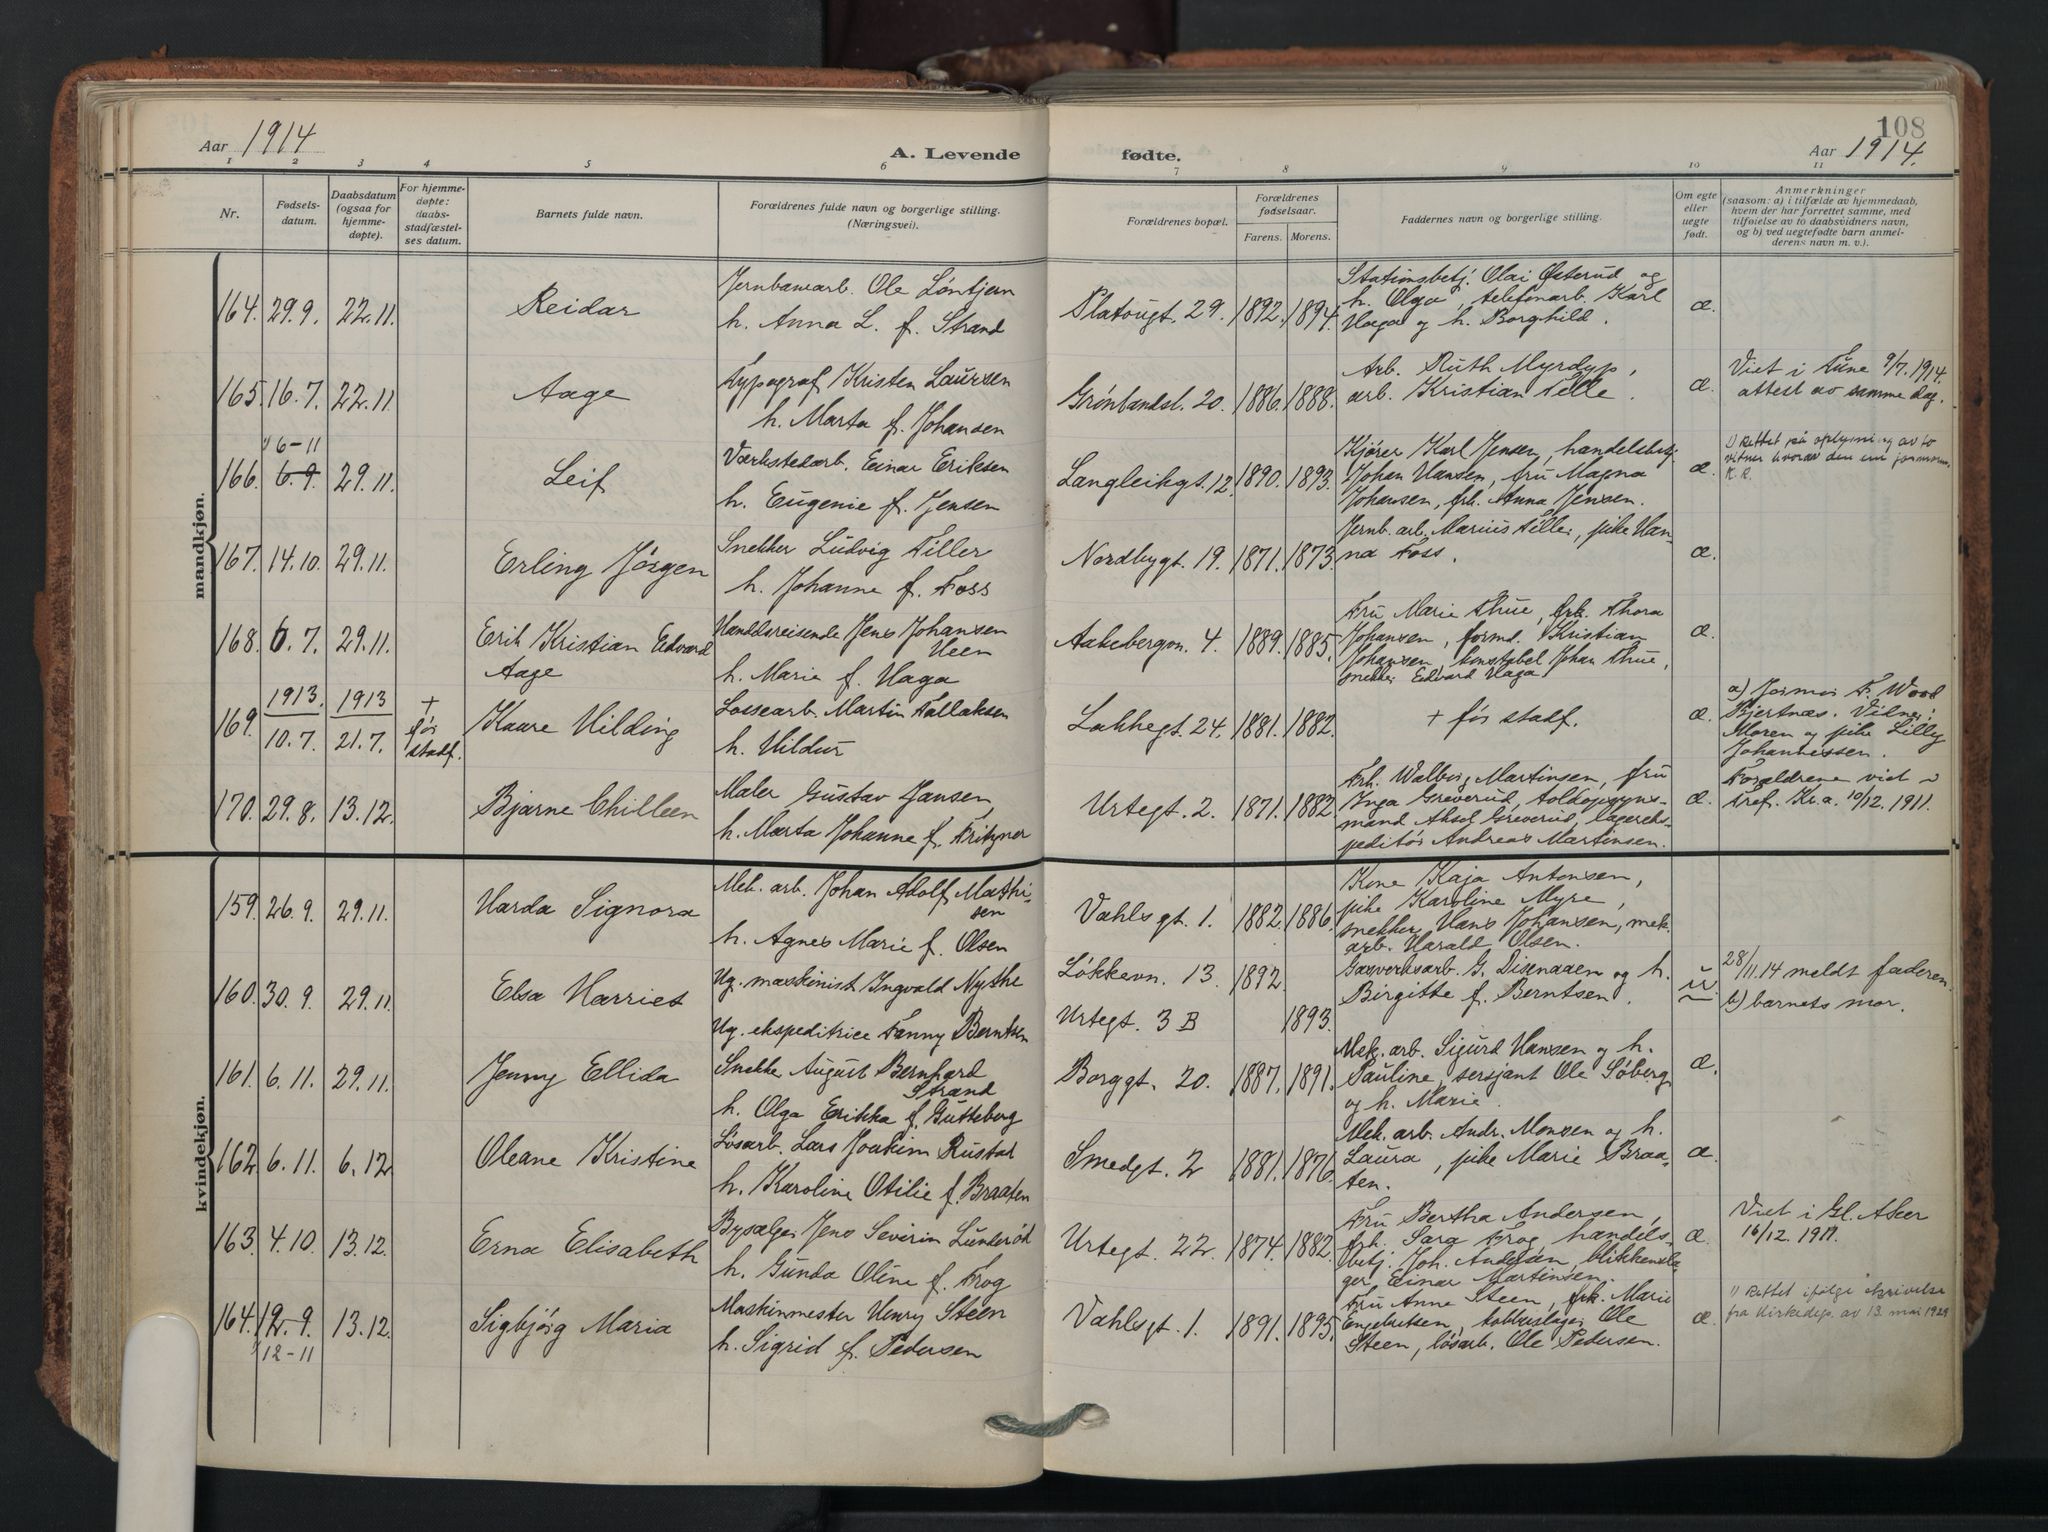 108
Aar 1914
A. Levende fødte.
Aar 1914.
1 2 3 4 5 6 7 8 9 10 11
Nr.
Fødsels-
datum.
Daabsdatum
(ogsaa for
hjemme-
døpte).
For hjemme-
døpte:
daabs-
stadfæstel-
ses datum.
Barnets fulde navn.
Forældrenes fulde navn og borgerlige stilling.
(Næringsvei).
Forældrenes bopæl.
Forældrenes
fødselsaar.
Farens. Morens.
Faddernes navn og borgerlige stilling.
Om egte
eller
uegte
født.
Anmerkninger
(saasom: a) i tilfælde av hjemmedaab,
hvem der har forrettet samme, med
tilføielse av to daabsvidners navn,
og b) ved uegtefødte barn anmel-
derens navn m. v.).
mandkjøn.
164. 29.9. 22.11. Reidar
Jernbanearb. Ole Løntjern
h. Anna L. f. Strand
Platougt. 29. 1892. 1894.
Stationsbetj. Olai Østerud og
h. Olga, telefonarb. Karl
Haga og h. Borghild.
æ.
165. 16.7. 22.11. Aage
Typograf Kristen Laursen
h. Marta f. Johansen
Grønlandsl. 20. 1886. 1888.
Arb. Ruth Myrdyp,
arb. Kristian Telle.
æ.
Viet i Tune 9/7. 1914.
attest av samme dag.
1) 6-11
166. 6.9. 29.11. Leif
Værkstedarb. Einar Eriksen
h. Eugenie f. Jensen
Langleikgt. 12. 1890. 1893.
Kjører Karl Jensen, handelsbetj.
Johan Hansen, fru Magna
Johansen, frk. Anna Jensen.
æ.
1) Rettet på oplysning av to
vitner hvorav den ene jormoren.
K.R.
167. 14.10. 29.11. Erling Jørgen
Snekker Ludvig Tiller
h. Johanne f. Foss
Nordbygt. 19. 1871. 1873.
Jernb. arb. Marius Tiller, pike Han-
na Foss.
æ.
168. 6.7. 29.11. Erik Kristian Edvard
Aage
Handelsreisende Jens Johansen
Ueen
h. Marie f. Haga
Aakebergvn. 4. 1889. 1885.
Fru Marie Thue, frk. Thora
Johansen, formd. Kristian
Johansen, konstabel Johan Thue,
snekker Edvard Haga.
æ.
169. 1913. 10.7. 1913 21.7. + før stadf.
Kaare Hilding
Lossearb. Martin Tallaksen
h. Hildur
Lakkegt. 24. 1881. 1882.
+ før stadf.
æ.
a) Jormor F. Wood
Bjertnæs. Vidner:
Moren og pike Lilly
Johannessen.
170. 29.8. 13.12. Bjarne Chilleen
Maler Gustav Jansen,
h. Marta Johanne f. Fritzner
Urtegt. 2. 1871. 1882.
Frk. Walborg Martinsen, fru
Inga Greverud, toldopsyns-
mand Aksel Greverud, lagereks-
peditør Andreas Martinsen.
æ.
Forældrene vied i
Tref. Kr.a. 10/12. 1911.
kvindekjøn.
159. 26.9. 29.11. Harda Signora
Mek. arb. Johan Adolf Mathi-
sen
h. Agnes Marie f. Olsen
Vahlsgt. 1. 1882. 1886.
Kone Kaja Antonsen,
pike Karoline Myre,
snekker Hans Johansen, mek.
arb. Harald Olsen.
160. 30.9. 29.11. Elsa Harriet
Ug. maskinist Ingvald Nythe
Ug. ekspeditrice Fanny Berntsen
Løkkevn. 13. 1892.
Urtegt. 3 B 1893.
Gasverksarb. G. Disenaaen og h.
Birgitte f. Berntsen.
u.
28/11.14 meldt faderen.
b) barnets mor.
161. 6.11. 29.11. Jenny Ellida
Snekker August Bernhard
Strand
h. Olga Erikka f. Gutteberg
Borggt. 20. 1887. 1891.
Mek. arb. Sigurd Hansen og h.
Pauline, sersjant Ole Søberg
og h. Marie.
æ.
162. 6.11. 6.12. Oleane Kristine
Løsarb. Lars Joakim Rustad
h. Karoline Otilie f. Braaten
Smedgt. 2 1881. 1876.
Mek. arb. Andr. Monsen og h.
Laura, pike Marie Braa-
ten.
æ.
163. 4.10. 13.12. Erna Elisabeth
Bysælger Jens Severin Lunderød
h. Gunda Oline f. Frog
Urtegt. 22. 1874. 1882.
Fru Bertha Andersen,
frk. Sara Frog, handels-
betj. Joh. Andersen, blikkensla-
ger Einar Martinsen.
æ.
Viet i Gl. Aker
16/12. 1911.
164. 12.9. 13.12. Sigbjørg Maria
1) 12-11
Maskinmester Henry Steen
h. Sigrid f. Pedersen
Vahlsgt. 1. 1891. 1895.
Fru Anne Steen, frk. Marie
Engebretsen, kobberslager Ole
Steen, løsarb. Ole Pedersen.
æ.
1) Rettet ifølge skrivelse
fra Kirkedep. av 13. mai 1929